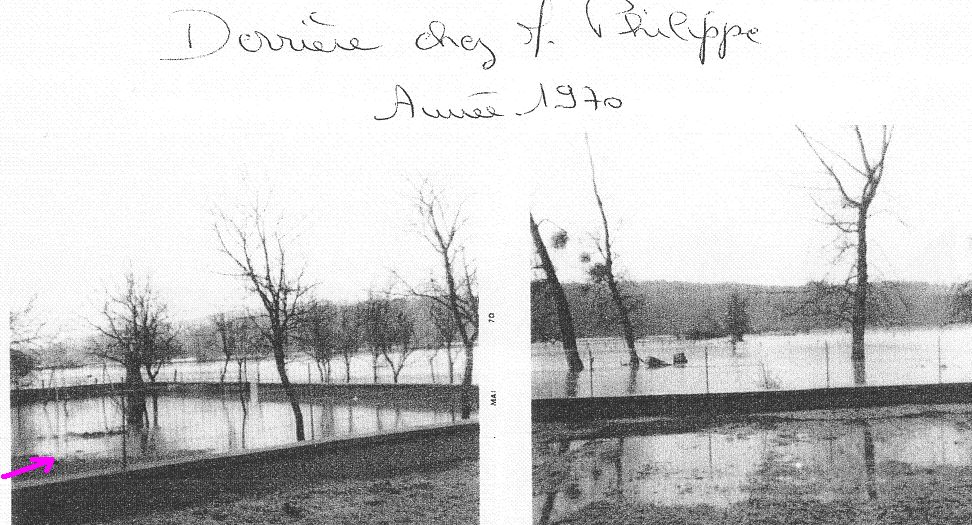 Derrière chez J. Philippe
Année 1970
MAI 70